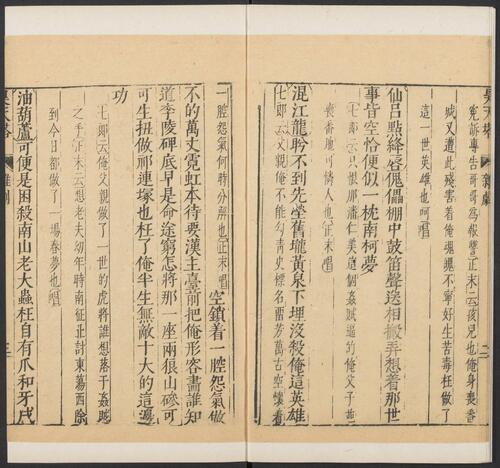 冤訴專告哥哥為報讐〔正末云〕孩兒也俺身喪番
賊又遭此殘害着俺魂魄不寧好生苦毒枉做了
這一世英雄也呵〔唱〕
仙呂點絳唇傀儡棚中鼓笛聲送相搬弄想着那世
事皆空恰便似一枕南柯夢
〔七郎云〕只恨那潘仁美這個姦賊逼的俺父子並
喪番地可憐人也〔正末唱〕
混江龍昤不到先塋舊壠黃泉下埋沒殺俺這英雄
〔七郎云〕父親俺不能勾青史標名留芳萬古空懷着
一腔怨氣何時分辨也〔正末唱〕空鎖着一腔怨氣做
不的萬丈霓虹本待要漢主臺前把俺形容畵誰知
道李陵碑底早是命途窮怎將那一座兩狼山磣可
可生扭做祁連塚也枉了俺半生無敵十大的這邊
功
〔七郎云〕俺父親做了一世的虎將誰想落于姦賊
之手〔正末云〕想老夫幼年時南征北討東蕩西除
到今日都做了一場春夢也〔唱〕
油葫蘆可便是困殺南山老大蟲枉自有爪和牙成
昊天塔
雜劇
二
三